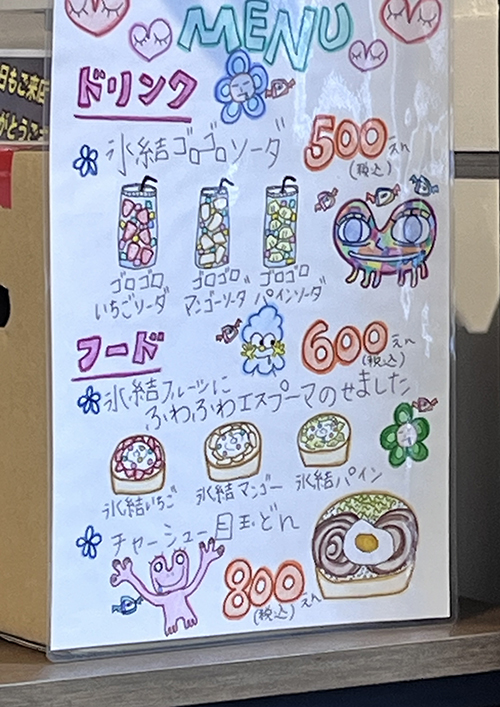 MENU
ドリンク
氷結ゴロゴロソーダ 500えん
(税込)
ゴロゴロ
いちごソーダ
ゴロゴロ
マンゴーソーダ
ゴロゴロ
パインソーダ
フード
600えん
(税込)
氷結フルーツに
ふわふわエスプーマのせました
氷結いちご
氷結マンゴー
氷結パイン
チャーシュー目玉どん
800えん
(税込)